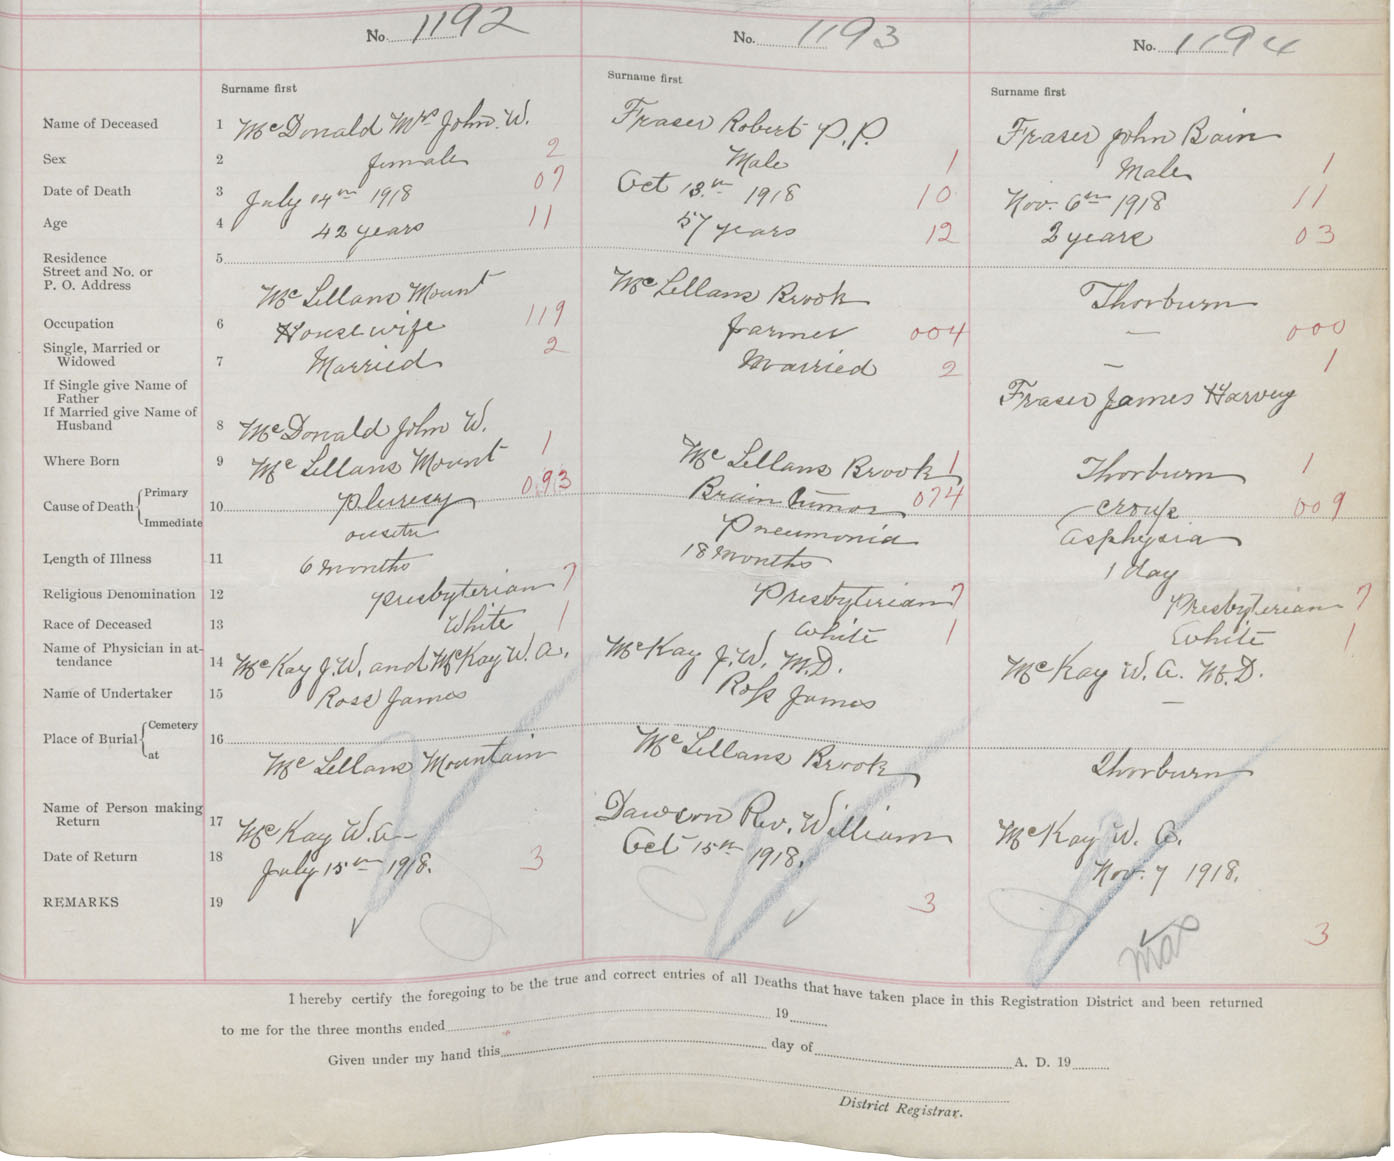 No. 1192
No. 1193
No. 1194
Surname first
Surname first
Surname first
Name of Deceased 1 McDonald Mrs John. W. Fraser Robert P.P. Fraser John Bain
Sex 2 female 2 Male 1 Male 1
Date of Death 3 July 14th 1918 07 Oct 13th 1918 10 Nov. 6th 1918 11
Age 4 42 years 11 57 years 12 3 years 03
Residence 5
Street and No. or
P. O. Address McLellans Mount McLellans Brook Thorburn
Occupation 6 Housewife 119 farmer 004 — 000
Single, Married or
Widowed 7 Married 2 Married 2 — 1
If Single give Name of
Father Fraser James Harvey
If Married give Name of
Husband 8 McDonald John W.
Where Born 9 McLellans Mount 1 McLellans Brook 1 Thorburn 1
Cause of Death { Primary 10 pluresy 093 Brain tumor 074 croup 009
Immediate Pneumonia Asphysia
Length of Illness 11 6 months 18 months 1 day
Religious Denomination 12 Presbyterian 7 Presbyterian 7 Presbyterian 7
Race of Deceased 13 White 1 White 1 White 1
Name of Physician in at-
tendance 14 McKay J.W. and McKay W.A. McKay J.W. M.D. McKay W.A. M.D.
Name of Undertaker 15 Ross James Ross James —
Place of Burial { Cemetery 16
at McLellans Mountain McLellans Brook Thorburn
Name of Person making
Return 17 McKay W.A— Dawson Rev. William McKay W. A.
Date of Return 18 July 15th 1918. 3 Oct 15th 1918. Nov. 7 1918.
REMARKS 19 ✓ 3 ✓ 3
I hereby certify the foregoing to be the true and correct entries of all Deaths that have taken place in this Registration District and been returned
to me for the three months ended 19
Given under my hand this day of A. D. 19
District Registrar.